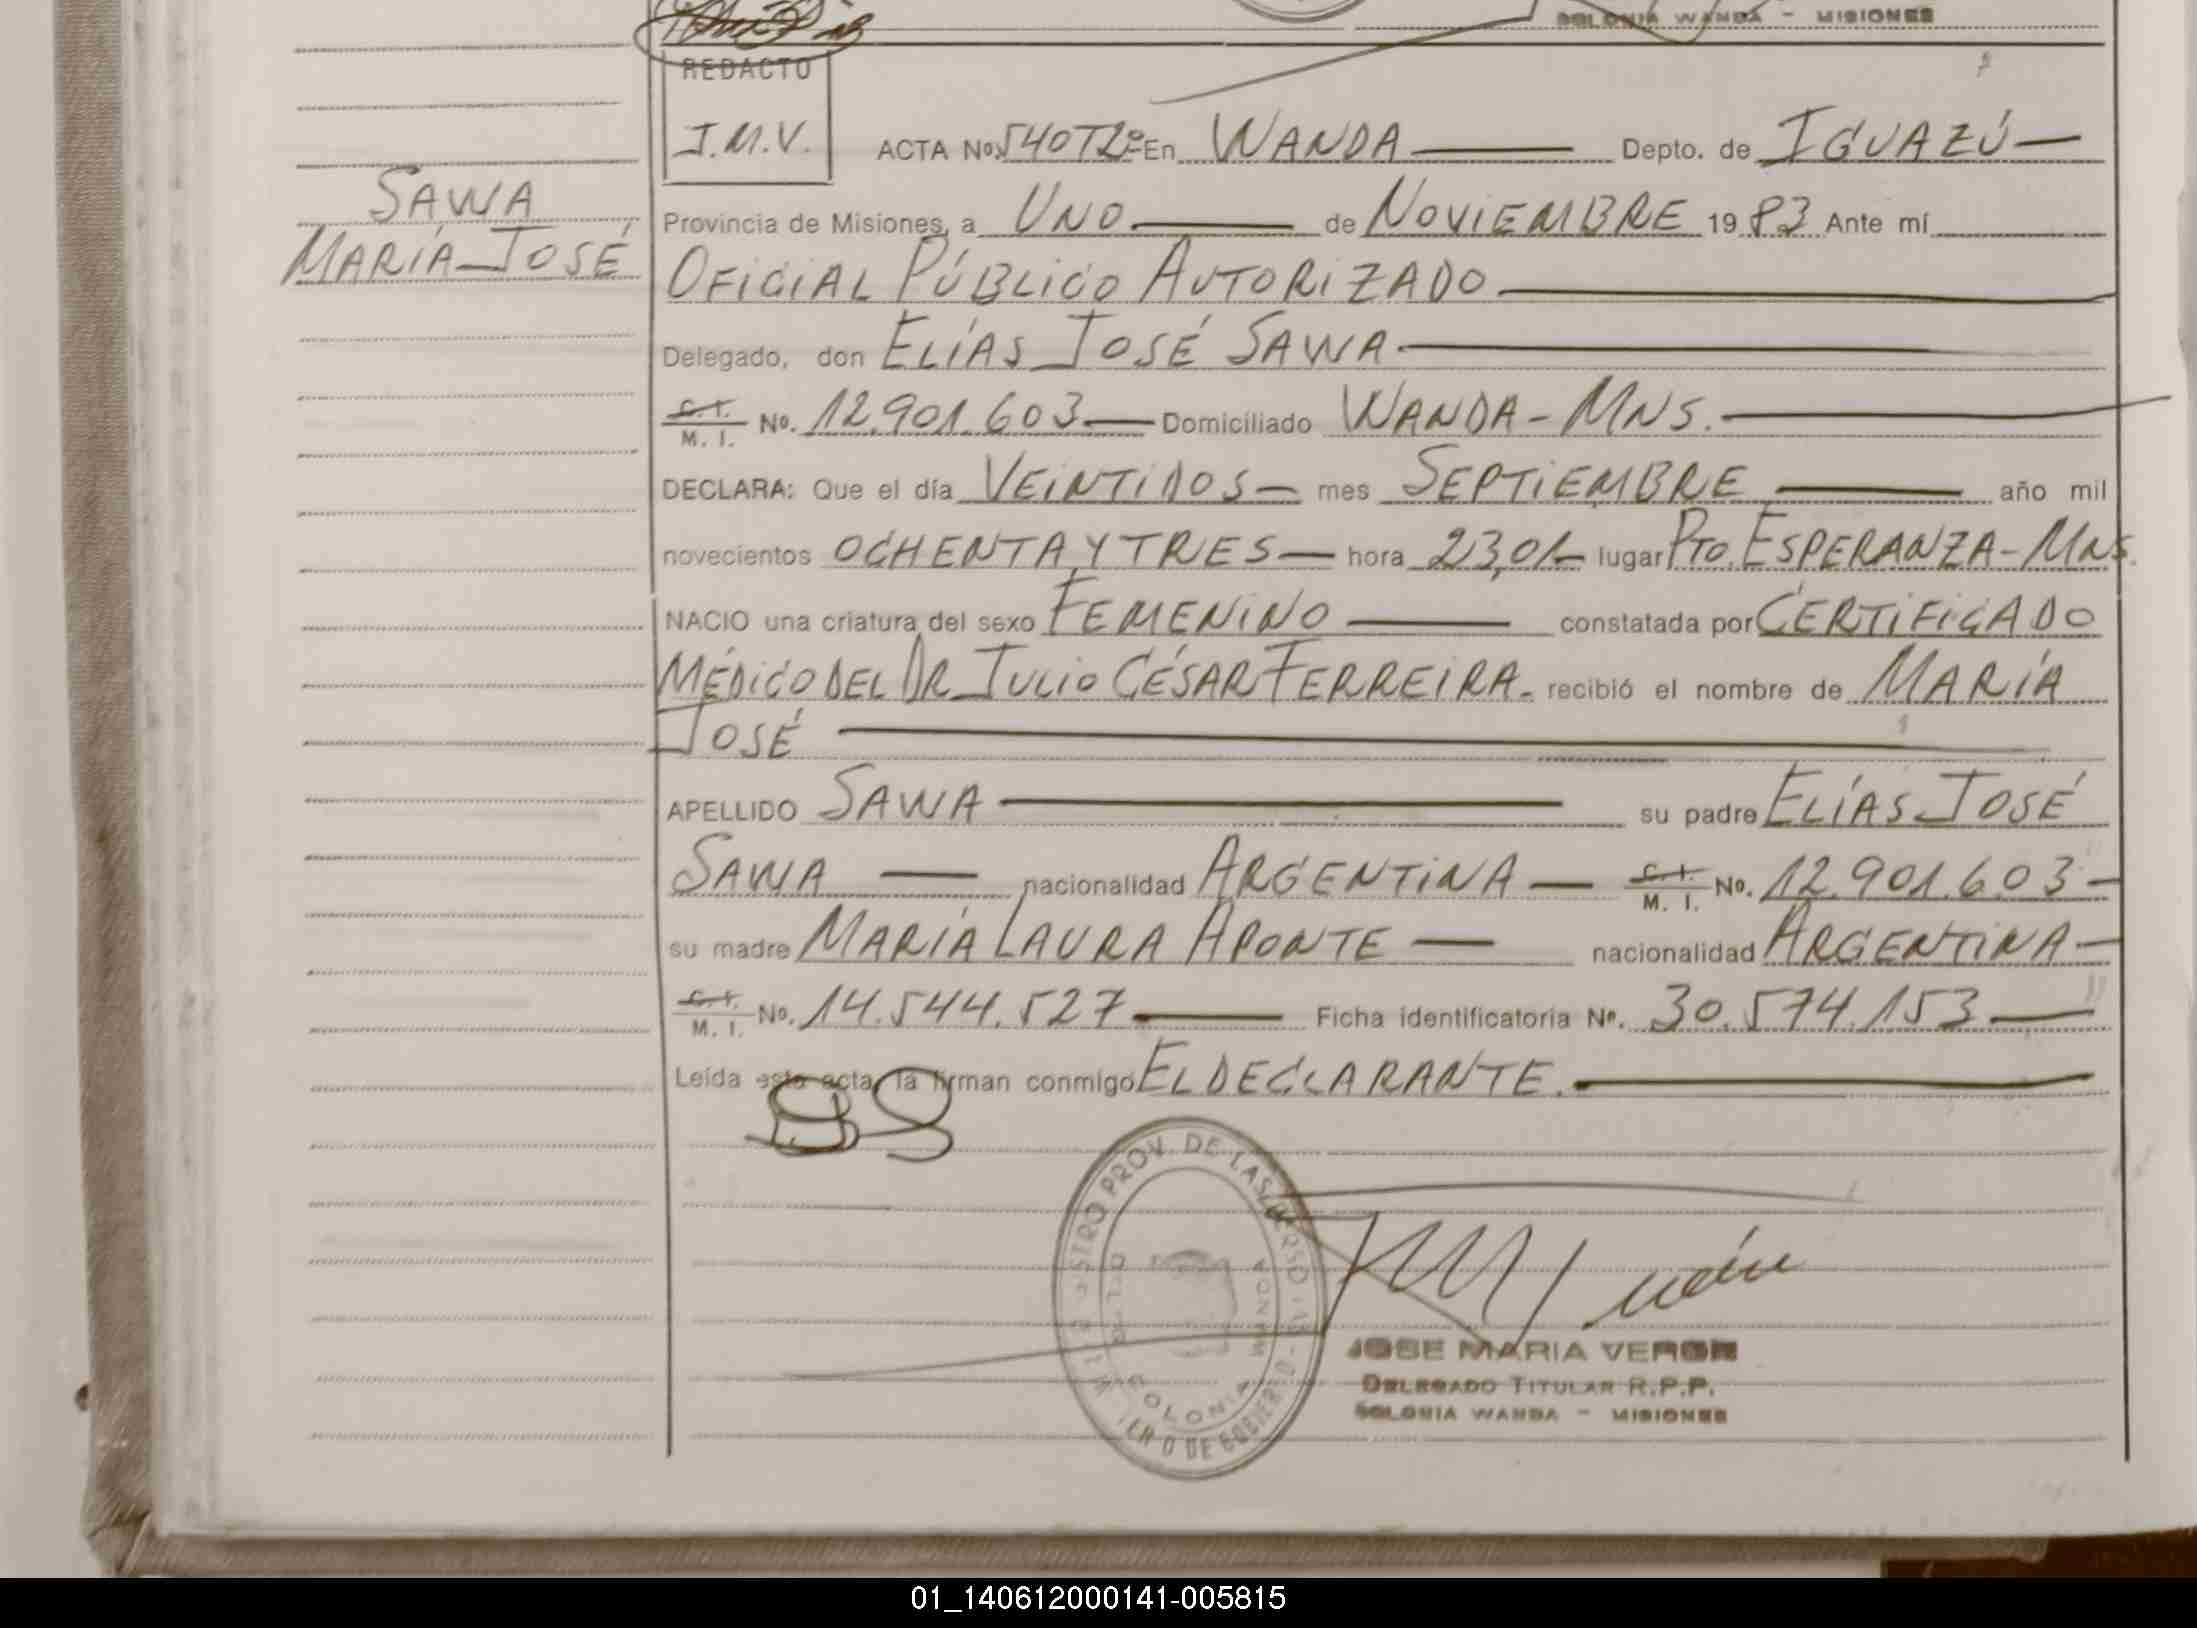 COLONIA WANDA - MISIONES
REDACTO
J.M.V.
ACTA No. 540T2º En WANDA Depto. de IGUAZÚ
SAWA
MARÍA JOSÉ
Provincia de Misiones, a UNO de NOVIEMBRE 1983 Ante mí
OFICIAL PÚBLICO AUTORIZADO
Delegado, don ELÍAS JOSÉ SAWA
C.I.
M. I. No. 12.901.603 Domiciliado WANDA - MNS.
DECLARA: Que el día VEINTIDOS mes SEPTIEMBRE año mil
novecientos OCHENTA Y TRES hora 23,01 lugar PTO. ESPERANZA - MNS.
NACIO una criatura del sexo FEMENINO constatada por CERTIFICADO
MÉDICO DEL DR. JULIO CÉSAR FERREIRA. recibió el nombre de MARÍA
JOSÉ
APELLIDO SAWA su padre ELÍAS JOSÉ
SAWA nacionalidad ARGENTINA C.I. M. I. No. 12.901.603
su madre MARÍA LAURA APONTE nacionalidad ARGENTINA
C.I.
M. I. No. 14.544.527 Ficha identificatoria Nº. 30.574.153
Leída esta acta, la firman conmigo EL DECLARANTE.
JOSE MARIA VERON
DELEGADO TITULAR R.P.P.
COLONIA WANDA - MISIONES
COLONIA WANDA
01_140612000141-005815